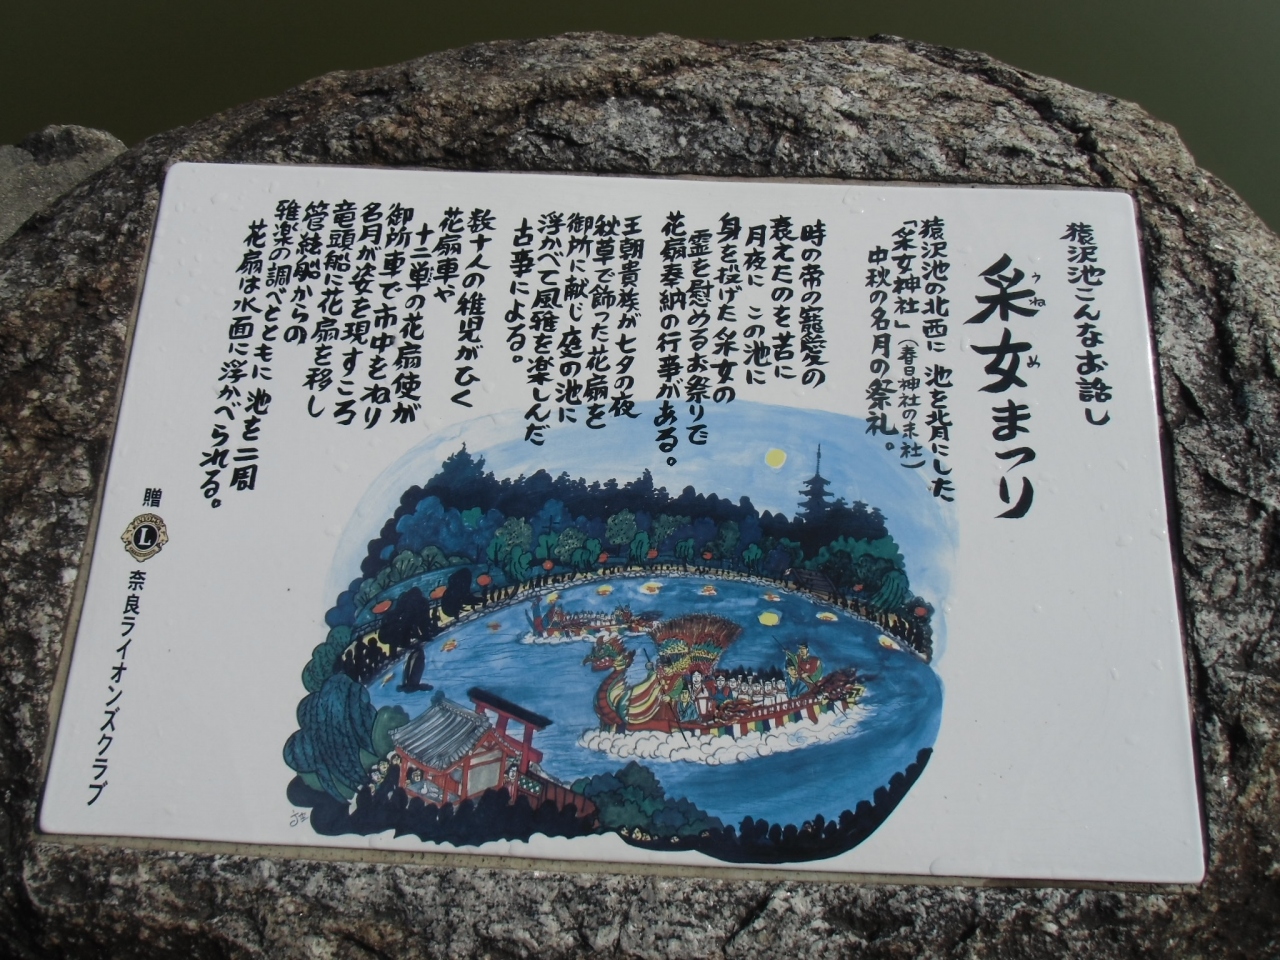 猿沢池こんなお話し
采女まつり
うねめ
猿沢池の北西に 池を背にした
「采女神社」(春日神社の末社)
中秋の名月の祭礼。
時の帝の寵愛の
衰えたのを苦に
月夜に この池に
身を投げた 采女の
霊を慰めるお祭りで
花扇奉納の行事がある。
王朝貴族が七夕の夜
秋草で飾った花扇を
御所に献じ庭の池に
浮かべて風雅を楽しんだ
古事による。
数十人の稚児がひく
花扇車や
十二単の花扇使が
御所車で市中をねり
名月が姿を現すころ
竜頭船に花扇を移し
管絃船からの
雅楽の調べとともに 池を二周
花扇は水面に浮かべられる。
贈
L
奈良ライオンズクラブ